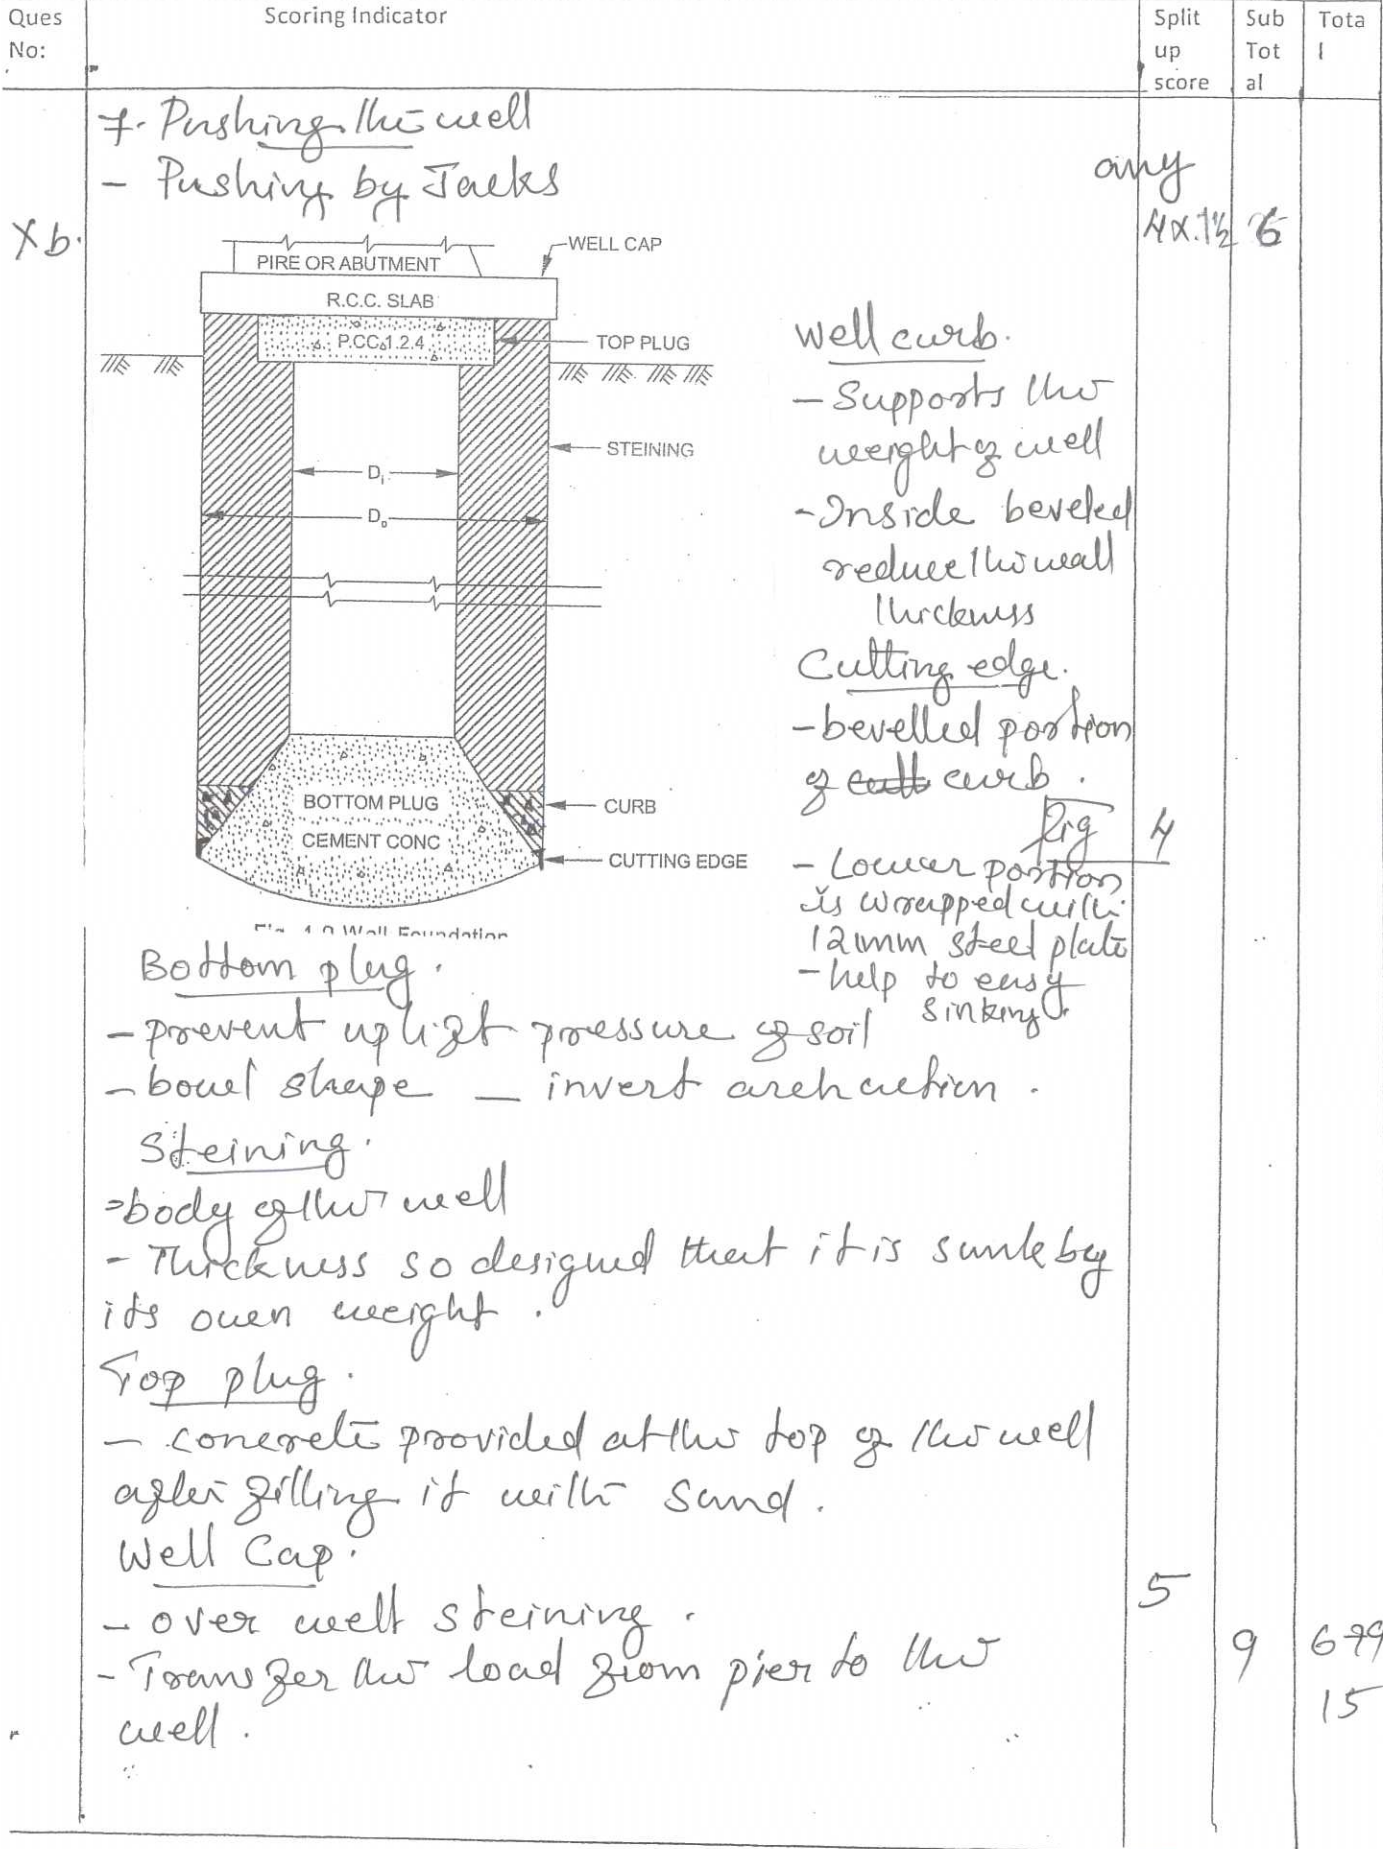 Ques No:
Scoring Indicator
Split up score
Sub Tot al
Tota l
7. Pushing the well
- Pushing by Jacks
any
4x1½ 6
X b.
WELL CAP
PIRE OR ABUTMENT
R.C.C. SLAB
P.CC.1.2.4
TOP PLUG
STEINING
Di
Do
BOTTOM PLUG
CEMENT CONC
CURB
CUTTING EDGE
Well curb.
- Supports the
weight of well
- Inside beveled
reduce the wall
thickness
Cutting edge.
- bevelled portion
of curb.
Fig 4
- Lower portion
is wrapped with
12mm steel plate
- help to easy
sinking.
Well Foundation
Bottom plug.
- prevent uplift pressure of soil
- bowl shape — invert arch action.
Steining.
- body of the well
- Thickness so designed that it is sunk by
its own weight.
Top plug.
- concrete provided at the top of the well
after filling it with sand.
Well Cap.
- over well steining.
- Transfer the load from pier to the
well.
5
9
6+9
15